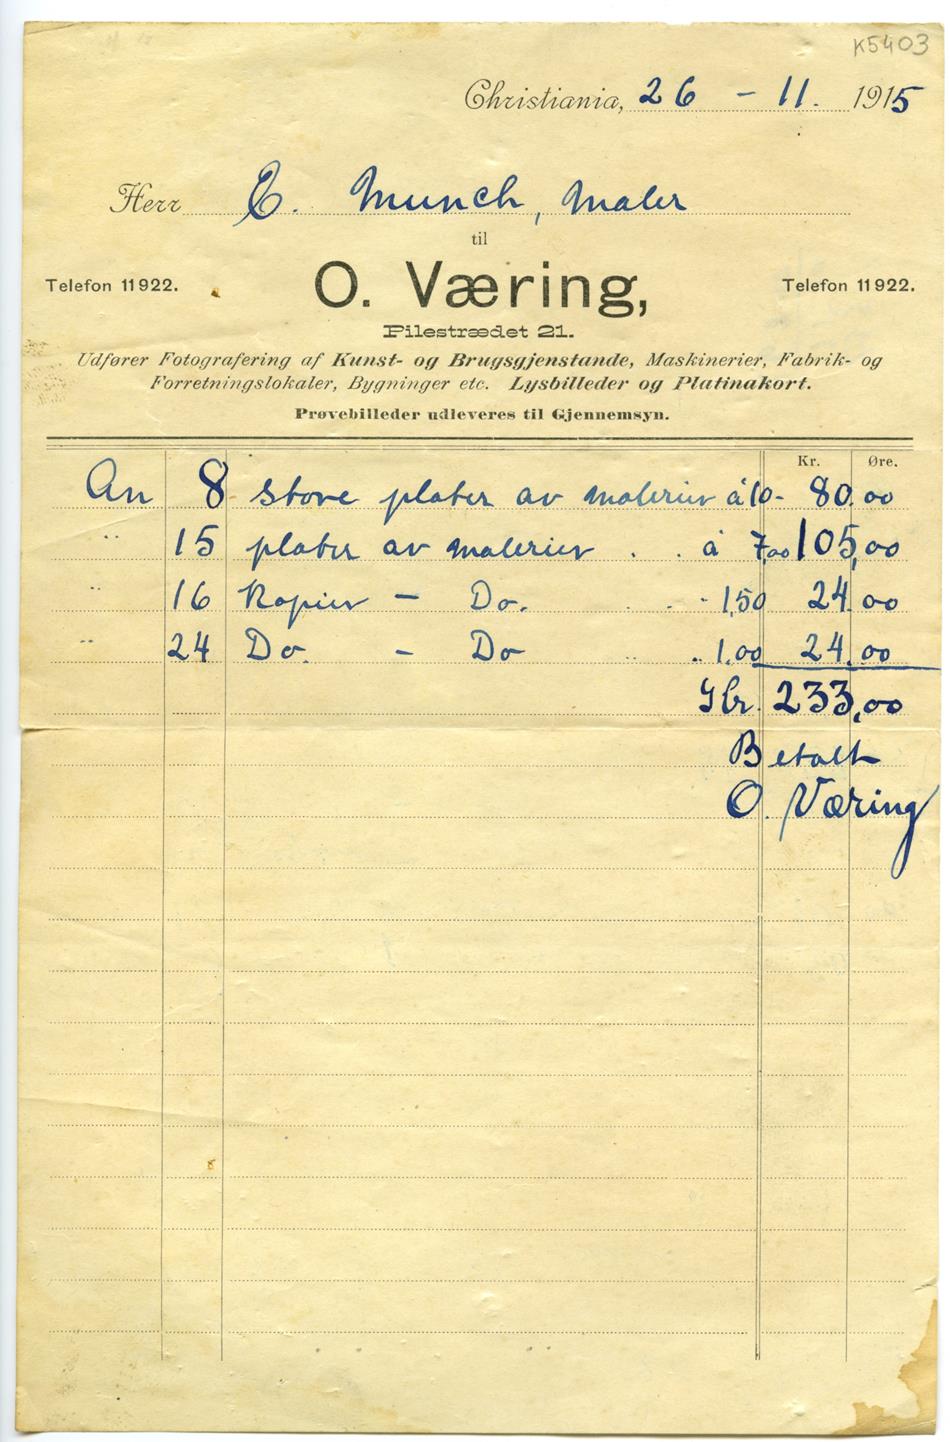 K5403
Christiania, 26 - 11. 1915
Herr E. Munch, Maler
til
Telefon 11922. O. Væring, Telefon 11922.
Pilestrædet 21.
Udfører Fotografering af Kunst- og Brugsgjenstande, Maskinerier, Fabrik- og
Forretningslokaler, Bygninger etc. Lysbilleder og Platinakort.
Prøvebilleder udleveres til Gjennemsyn.
Kr. Øre.
An 8 store plater av malerier á 10- 80.00
" 15 plater av malerier . . á 7,00 105,00
" 16 Kopier - Do. . . - 1,50 24.00
" 24 Do. - Do " .. 1.00 24.00
Kr. 233,00
Betalt
O. Væring